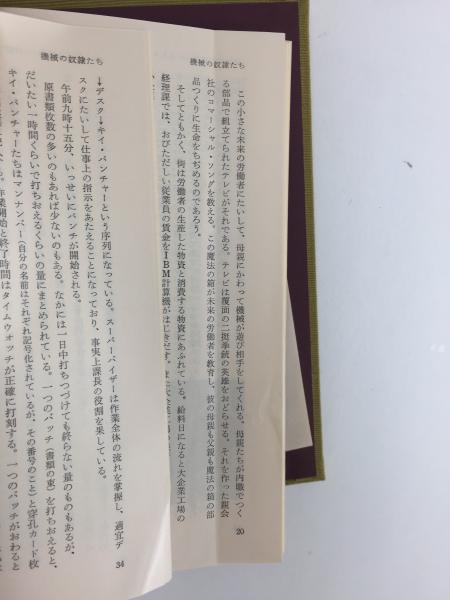 機械の奴隷たち
この小さな未来の労働者にたいして、母親にかわって機械が遊び相手をしてくれる。母親たちが内職でつく
る部品で組立てられたテレビがそれである。テレビは覆面の二挺拳銃の英雄をおどらせる。それを作った親会
社のコマーシャル・ソングを教える。この魔法の箱が未来の労働者を教育し、彼の母親も父親も魔法の箱の部
品つくりに生命をちぢめるのであろう。
そしてともかく、街は労働者の生産した物資と消費する物資にあふれている。給料日になると大企業工場の
経理課では、おびただしい従業員の賃金をIBM計算機がはじきだす。
20
機械の奴隷たち
→デスク→キイ・パンチャーという序列になっている。スーパーバイザーは作業全体の流れを掌握し、適宜デ
スクにたいして仕事上の指示をあたえることになっており、事実上課長の役割を果している。
午前九時十五分、いっせいにパンチが開始される。
原書類枚数の多いのもあれば少ないのもある。なかには一日中打ちつづけても終らない量のものもあるが、
だいたい一時間くらいで打ちおえるくらいの量にまとめられている。一つのバッチ(書類の束)を打ちおえると、
キイ・パンチャーたちはマンナンバー(自分の名前はそれぞれ記号化されているが、その番号のこと)と穿孔カード枚
作業開始と終了時間はタイムウォッチが正確に打刻する。一つのバッチがおわると
34